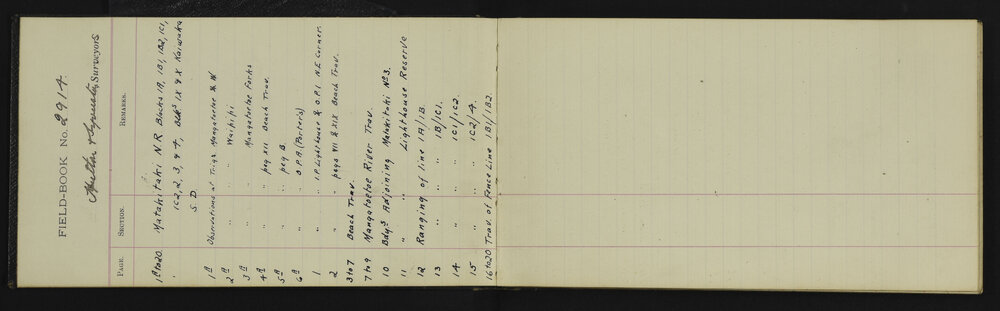 FIELD-BOOK No. 2914.
& Surveyors
PAGE. SECTION. REMARKS.
1a to 20. Matakitaki N R Blocks 1A, 1B1, 1B2, 1C1,
1C2, 2, 3, & 4, Blks IX & X Kaiwaka
S. D.
1a Observations at Trigs Mangatoetoe & W
2a " " Waipipi
3a " " Mangatoetoe Forks
4a " " peg XII Beach Trav.
5a " " peg B.
6a " " O.P.A. (Porter's)
1 " " I.P. Lighthouse & O.P.1 N.E. Corner.
2 " " pegs VII & XIX Beach Trav.
3 to 7 Beach Trav.
7 to 9 Mangatoetoe River Trav.
10 Bdys Adjoining Matakitaki No 3.
11 " " Lighthouse Reserve
12 Ranging of line 1A/1B.
13 " " " 1B/1C1.
14 " " " 1C1/1C2.
15 " " " 1C2/4.
16 to 20 Trav. of Fence Line 1B1/1B2.